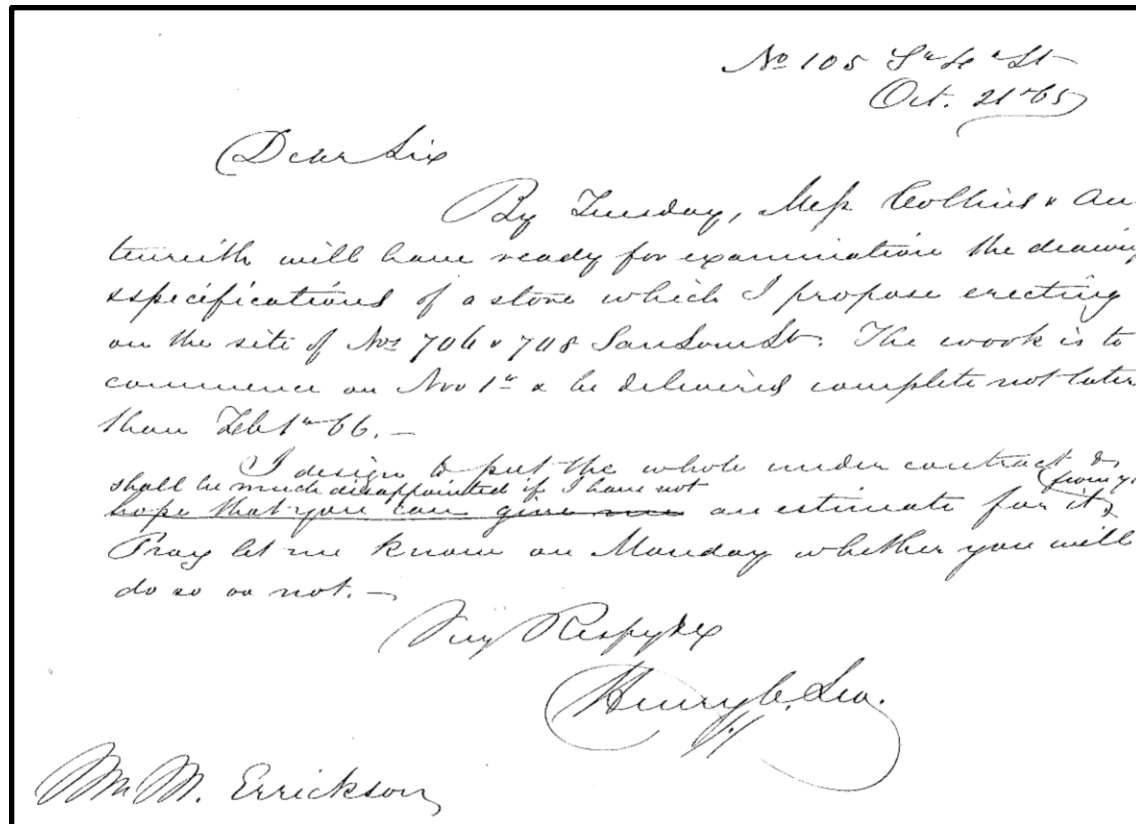 No 105 So 4th St
Oct. 21st 65
Dear Sir
By Tuesday, Mess Collins & Au-
tenrieth will have ready for examination the drawing
& specifications of a store which I propose erecting
on the site of Nos 706 & 708 Sansom St. The work is to
commence on Nov 1st & be delivered complete not later
than Feb 1st 66. —
I design to put the whole under contract &
shall be much disappointed if I have not from y
hope that you can give me an estimate for it.
Pray let me know on Monday whether you will
do so or not. —
Very Respy &c
Henry C. Lea.
M. Errickson